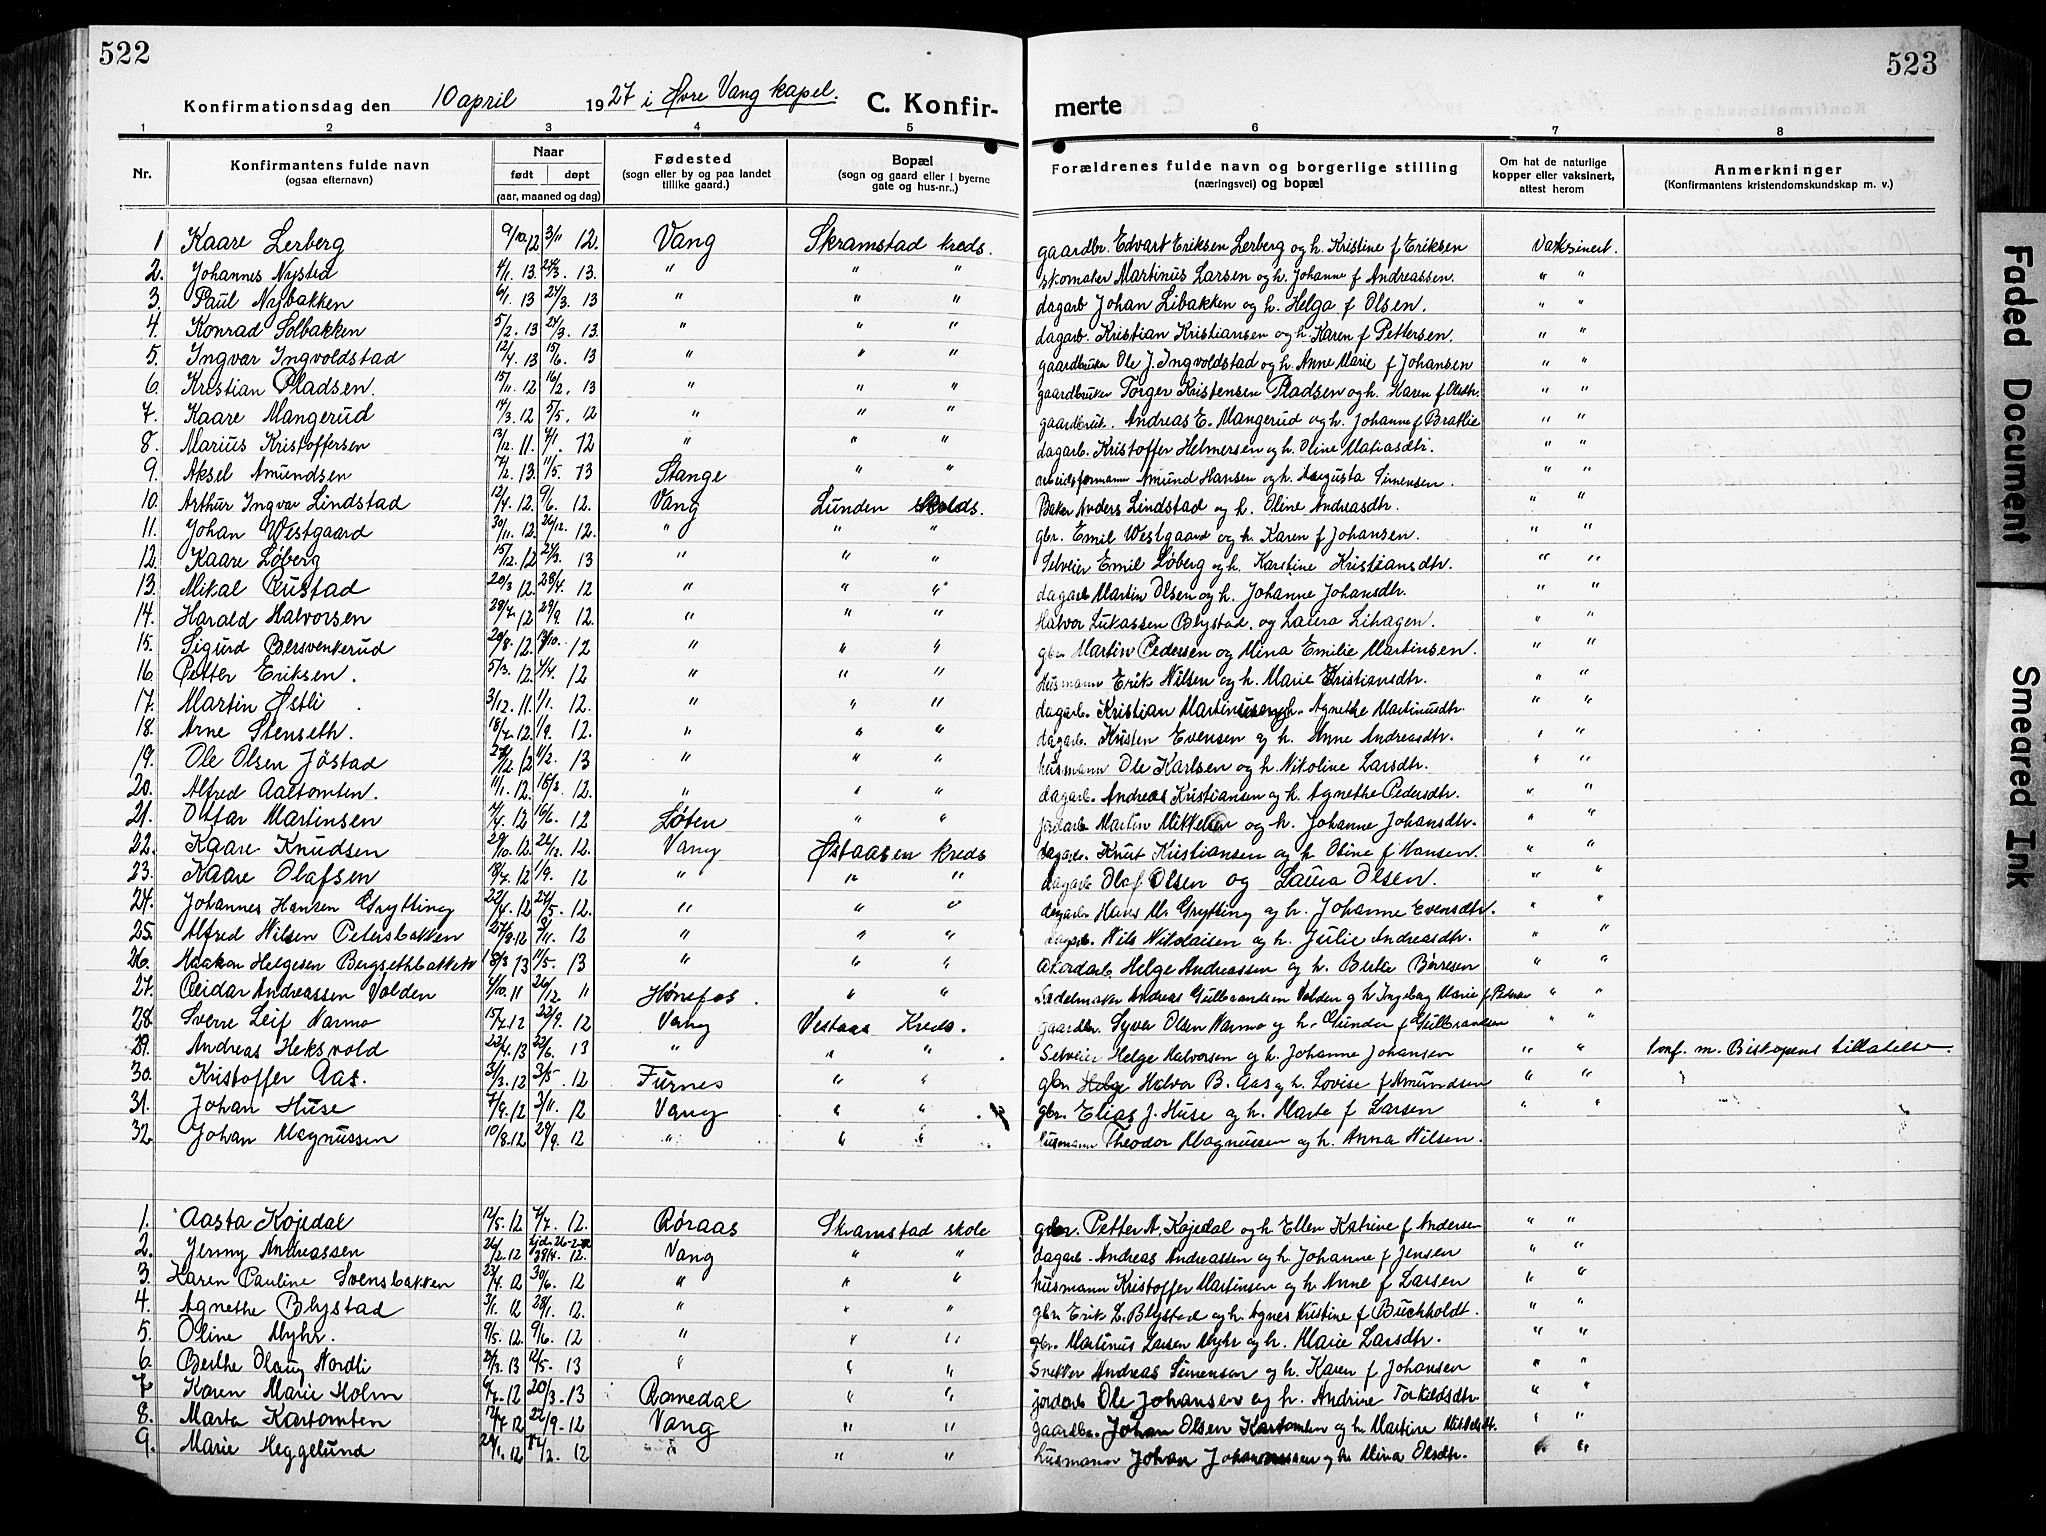 522
523
Konfirmationsdag den 10 april 1927 i Øvre Vang kapel. C. Konfir- merte
1 2 3 4 5 6 7 8
Nr. Konfirmantens fulde navn (ogsaa efternavn) Naar født døpt (aar, maaned og dag) Fødested (sogn eller by og paa landet tillike gaard.) Bopæl (sogn og gaard eller i byerne gate og hus-nr..) Forældrenes fulde navn og borgerlige stilling (næringsvei) og bopæl Om hat de naturlige kopper eller vaksinert, attest herom Anmerkninger (Konfirmantens kristendomskundskap m. v.)
1 Kaare Lerberg 9/10 12 3/11 12. Vang Skramstad kreds. gaardbr. Edvart Eriksen Lerberg og h. Kristine f Eriksen Vaksinert.
2. Johannes Nystad 4/1. 13. 24/3. 13. " " " skomaker Martinus Larsen og h. Johanne f Andreassen. " "
3. Paul Nybakken 6/1. 13 24/3. 13 " " " dagarb Johan Libakken og h. Helga f Olsen. " "
4. Konrad Solbakken 5/2. 13 24/3. 13. " " " dagarb. Kristian Kristiansen og h. Karen f Pettersen. " "
5. Ingvar Ingvoldstad 12/4. 13 15/6. 13 " " " gaardbruker Ole J. Ingvoldstad og h. Anne Marie f Johansen " "
6. Kristian Pladsen. 15/11. 12 16/2. 13 " " " gaardbruker Torger Kristensen Pladsen og h. Karen f Olsdtr. " "
7. Kaare Mangerud 14/3. 12 5/5. 12 " " " gaardbruk. Andreas E. Mangerud og h. Johanne f Bratlie " "
8. Marius Kristoffersen 13/12. 11. 4/1. 12 " " " dagarb. Kristoffer Helmersen og h. Oline Matiasdtr. " "
9. Aksel Amundsen 7/2. 13. 11/5. 13 Stange " " arbeidsformann Amund Hansen og h. Augusta Simensen. " "
10. Arthur Ingvar Lindstad 12/4. 12. 9/6. 12. Vang Lunden kreds. Baker Anders Lindstad og h. Oline Andreasdtr. " "
11. Johan Westgaard 30/11. 12. 26/12. 12. " " " gbr. Emil Westgaard og h. Karen f Johansen. " "
12. Kaare Løberg 15/12. 12 24/3. 13 " " " Selveier Emil Løberg og h. Karstine Kristiansdtr. " "
13. Mikal Rustad 20/3 12. 28/4. 12 " " " dagarb Martin Olsen og h. Johanne Johansdtr. " "
14. Harald Halvorsen 28/7. 12 29/9. 12. " " " Halvor Lukassen Blystad. og Laura Lihagen. " "
15. Sigurd Bersvenkerud 20/8. 12. 13/10. 12 " " " gbr. Martin Pedersen og Mina Emilie Martinsen. " "
16. Petter Eriksen. 5/3. 12. 4/4. 12 " " " Husmann Erik Nilsen og h. Marie Kristiansdtr. " "
17. Martin Østli 3/12. 11. 1/1. 12. " " " dagarb. Kristian Martinsen og h. Agnethe Martinusdtr. " "
18. Arne Stenseth. 18/7. 12. 1/9. 12. " " " dagarb. Kristen Evensen og h. Anne Andreasdtr. " "
19. Ole Olsen Jøstad 27/12. 12 11/2. 13 " " " husmann Ole Karlsen og h. Nikoline Larsdtr. " "
20. Alfred Aastomten. 11/1. 12. 18/2. 12. " " " dagarb. Andreas Kristiansen og h. Agnethe Pedersdtr. " "
21. Ottar Martinsen 12 16/6. 12 Løten " " jordarb Martin Mikkelsen og h. Johanne Johansdtr. " "
22. Kaare Knudsen 29/10. 12. 26/12. 12. Vang Østaasen kreds dagarb. Knut Kristiansen og h. Oline f Hansen. " "
23. Kaare Olafsen 18/7. 12 1/9. 12 " " " dagarb Olaf Olsen og Laura Olsen. " "
24. Johannes Hansen Grytting 22/4. 12 27/5. 12. " " " dagarb Hans M. Grytting og h. Johanne Evensdtr. " "
25. Alfred Nilsen Petersbakken 27/8. 12 9/11. 12 " " " dagarb. Nils Nikolaisen og h. Julie Andreasdtr. " "
26. Haakon Helgesen Bergsethbakken 18/3 13 11/5. 13 " " " Akordarb. Helge Andreassen og h. Berte Børresen " "
27. Reidar Andreassen Volden 4/10. 11 26/12 11 Hønefos. " " Sadelmaker Andreas Gulbrandsen Volden og h Ingeborg Marie f " "
28. Sverre Leif Narmo 15/7. 12 22/9. 12 Vang Vestaas Kreds. gaardbr. Syver Olsen Narmo og h. Gunda f Gulbrandsen " "
29. Andreas Heksvold 22/4. 13 22/6. 13 " " " Selveier Helge Halvorsen og h. Johanne Johansen " " Konf. m. Biskopens tillatelse.
30. Kristoffer Aas. 31/3. 12 3/5. 12 Furnes " " gbr. Helge Halvor B. Aas og h. Lovise f Amundsen " "
31. Johan Huse 7/9. 12 3/11. 12 Vang " " gbr. Elias J. Huse og h. Marte f Larsen " "
32. Johan Magnussen 10/8. 12 29/9. 12 " " " husmann Theodor Magnussen og h. Anna Nilsen.
1. Aasta Kojedal 12/5. 12 7/7. 12. Røraas Skramstad skole gbr. Petter A. Kojedal og h. Ellen Katrine f Andersen " "
2. Jenny Andreassen 26/2. 12 28/4. 12. Vang " " dagarb. Andreas Andreassen og h. Johanne f Jensen " "
3. Karen Pauline Svensbakken 23/4. 12 30/6. 12 " " " husmann Kristoffer Martinsen og h. Anne f Larsen " "
4. Agnethe Blystad 3/1. 12 28/1. 12. " " " gbr. Erik L. Blystad og h. Agnes Kristine f Buchholdt. " "
5. Oline Myhr. 9/5. 12. 9/6. 12 " " " gbr. Martinus Larsen Myhr og h. Marie Larsdtr. " "
6. Berthe Olaug Nordli 24/3. 13 12/5. 13 " " " Snekker Andreas Simensen og h. Karen f Johansen " "
7. Karen Marie Holm 12 20/3. 13 Romedal " " jordarb Ole Johansen og h. Andrine Torkildsdtr. " "
8. Marta Kartomten 12/7 12 22/9. 12 Vang " " gaardbr. Johan Olsen Kartomten og h. Martine Mikkelsdt. " "
9. Marie Heggelund 12 12 " " " husmann Johan Johannessen og h. Mina Olsdtr. " "
Faded Document
Smeared Ink